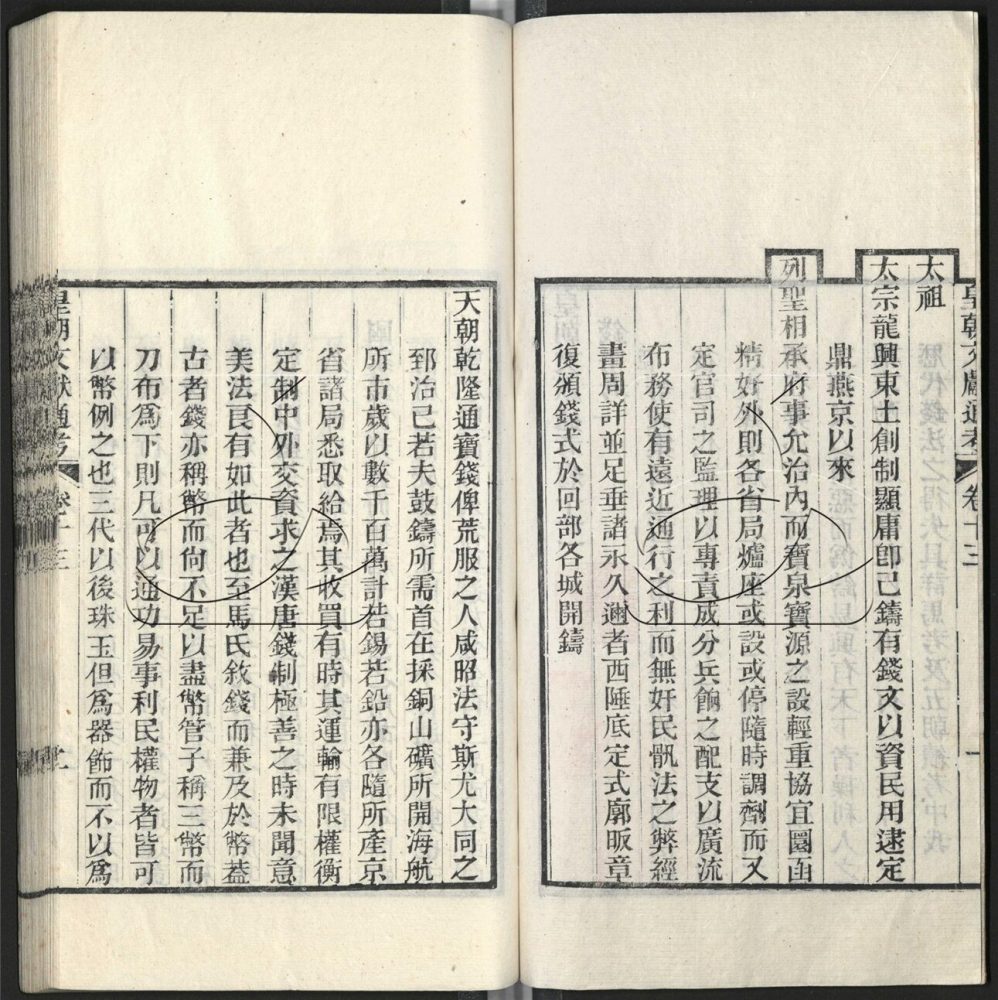 皇朝文獻通考 卷十三 一
太祖
太宗龍興東土創制顯庸卽已鑄有錢文以資民用逮定
鼎燕京以來
列聖相承府事允治內而寶泉寶源之設輕重協宜圜函
精好外則各省局爐座或設或停隨時調劑而又
定官司之監理以專責成分兵餉之配支以廣流
布務使有遠近通行之利而無奸民骫法之弊經
畫周詳並足垂諸永久邇者西陲底定式廓昄章
復頒錢式於回部各城開鑄
天朝乾隆通寶錢俾荒服之人咸昭法守斯尤大同之
郅治已若夫鼓鑄所需首在採銅山礦所開海航
所市歲以數千百萬計若錫若鉛亦各隨所產京
省諸局悉取給焉其收買有時其運輸有限權衡
定制中外交資求之漢唐錢制極善之時未聞意
美法良有如此者也至馬氏敘錢而兼及於幣蓋
古者錢亦稱幣而尙不足以盡幣管子稱三幣而
刀布爲下則凡可以通功易事利民權物者皆可
以幣例之也三代以後珠玉但爲器飾而不以爲
皇朝文獻通考 卷十三